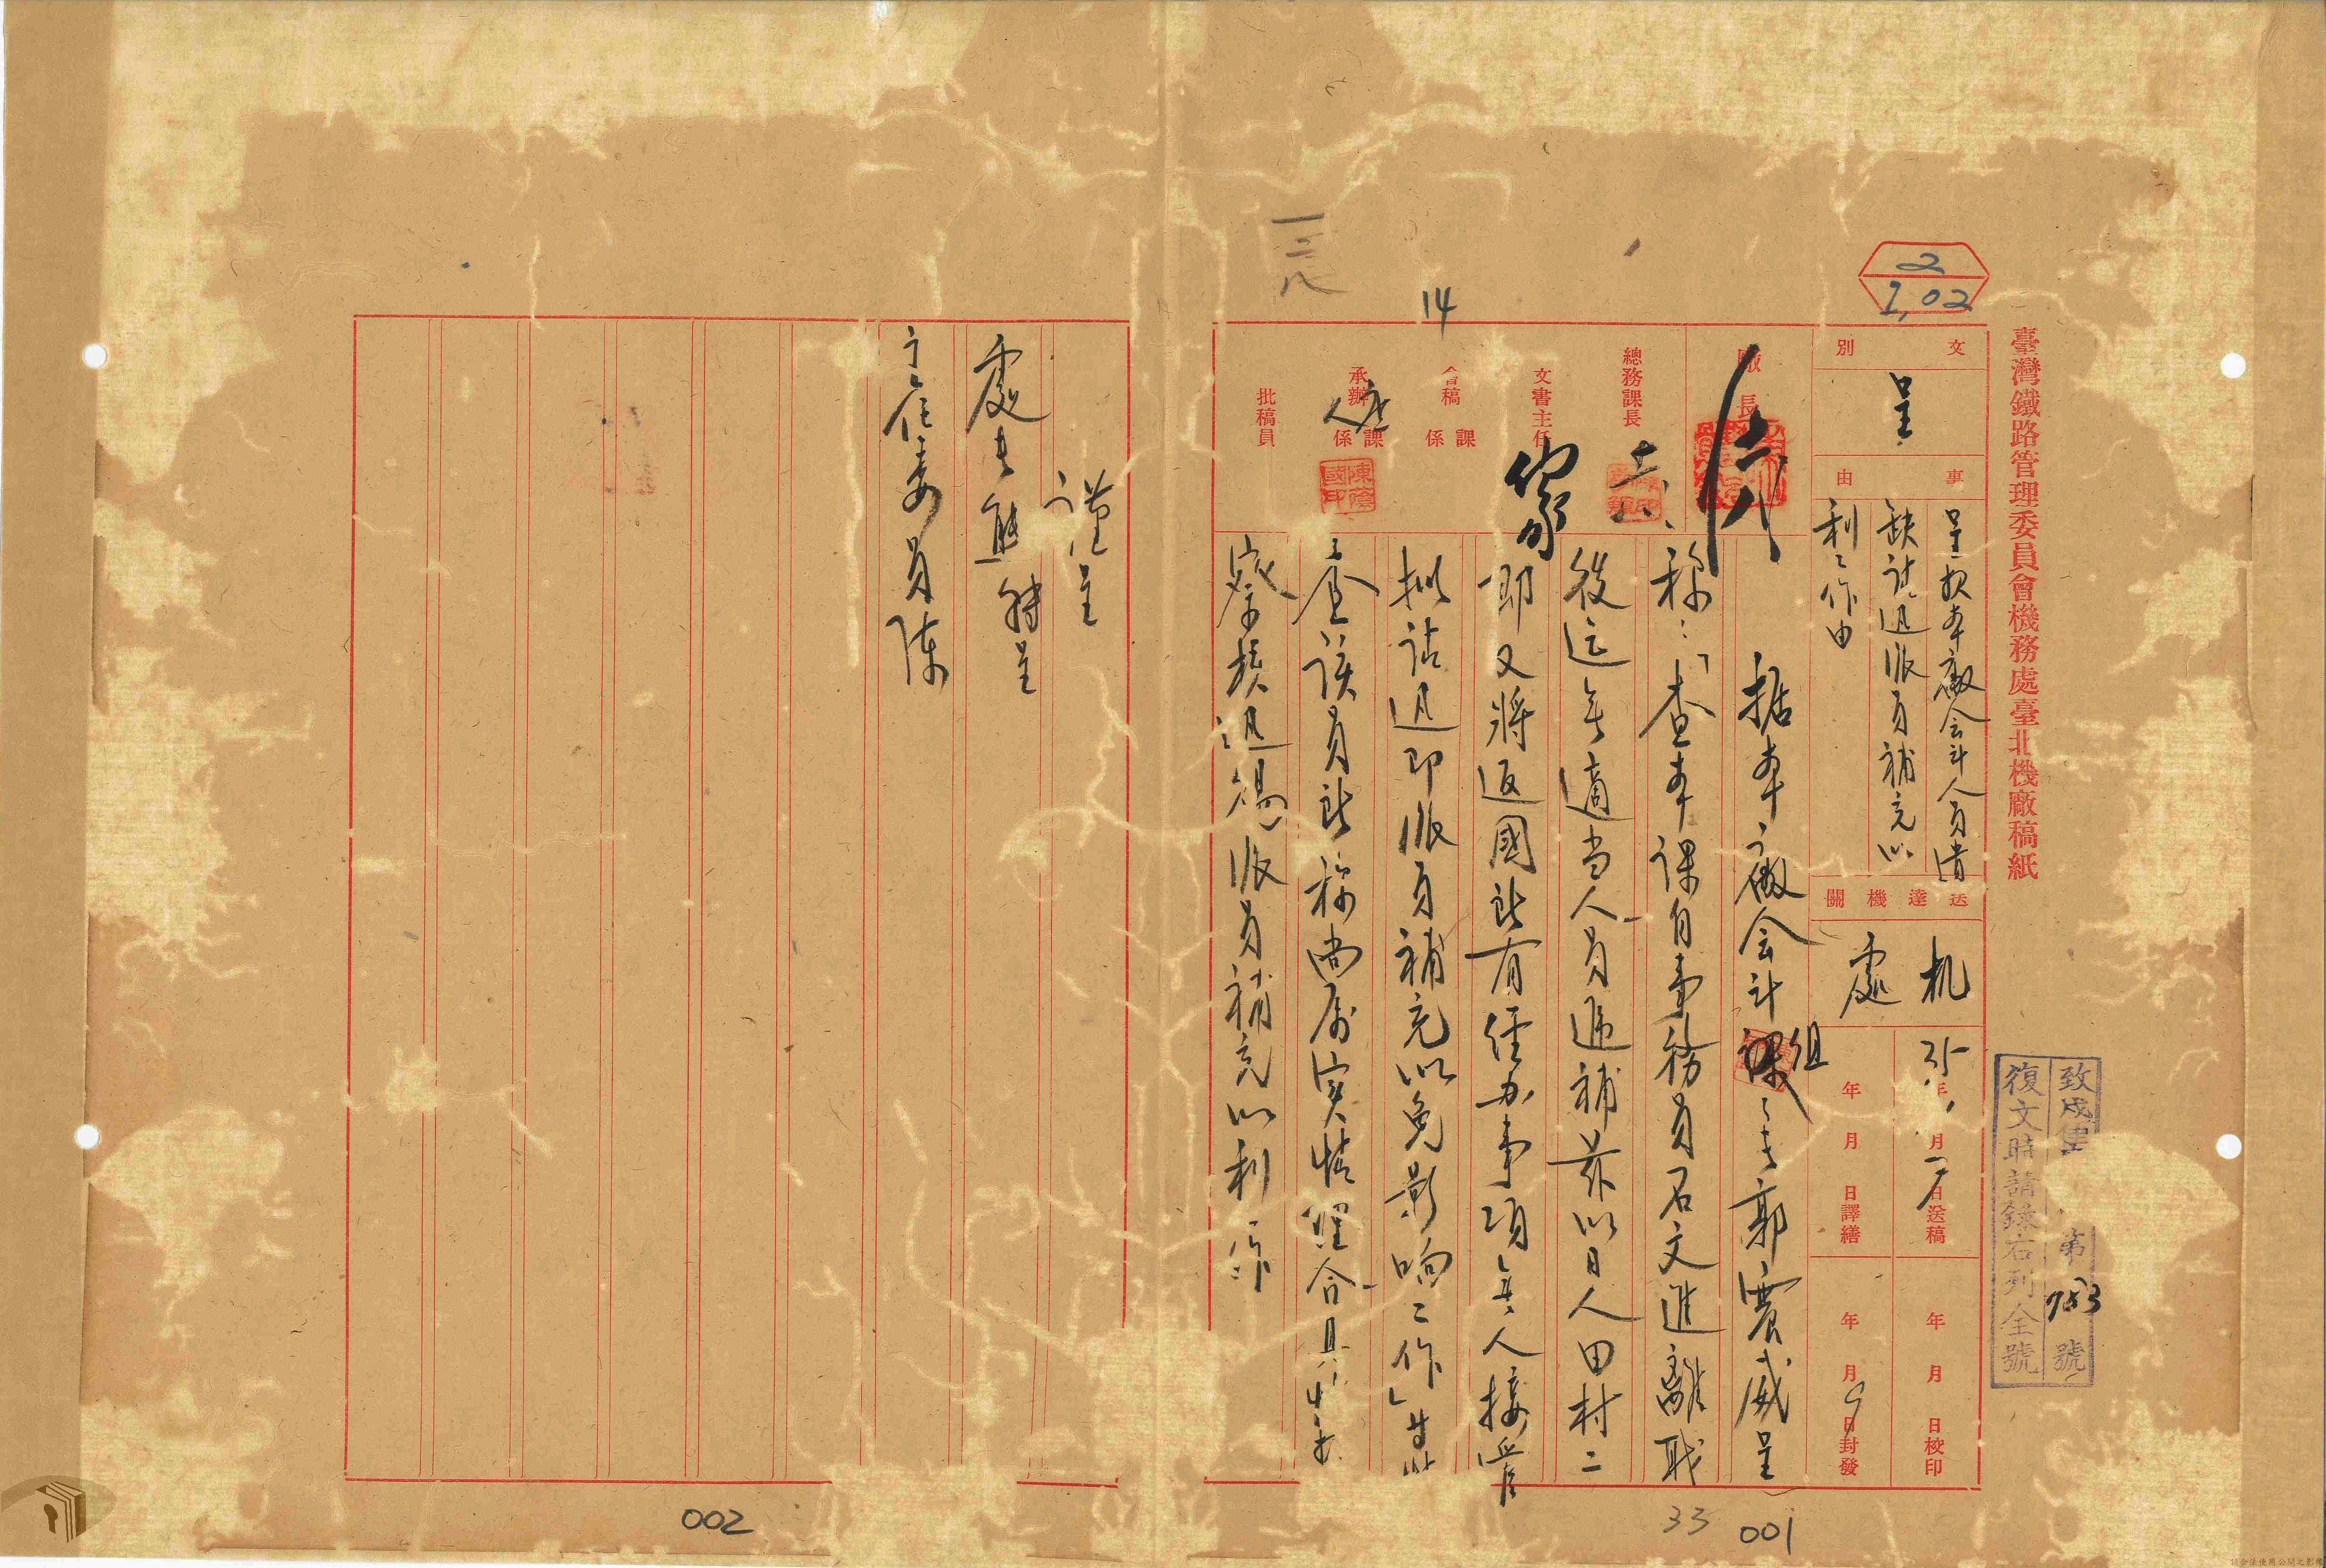 臺灣鐵路管理委員會機務處臺北機廠稿紙
致戌 第753號
復文時請錄右列全號
2
1,02
文別
呈
事由
呈報本廠会計人員遺
缺請迅派員補充以
利工作由
送達機關
机
處
35年 月 日送稿
年 月 日譯繕
年 月 日校印
年 月9日封發
廠長
總務課長
文書主任
會稿 課 係
承辦 課 係
批稿員
14
一三八
據本廠会計組郭震威呈
称：「查本課自事務員石文進離职
後迄無適当人員遞補茲以日人田村二
郎又将返國所有经办事項無人接管
拟請迅即派員補充以免影响工作」等
查該員所称尚属实情理合具
察核迅賜派員補充以利工作
謹呈
處長熊 轉呈
主任委員陳
002
33
001